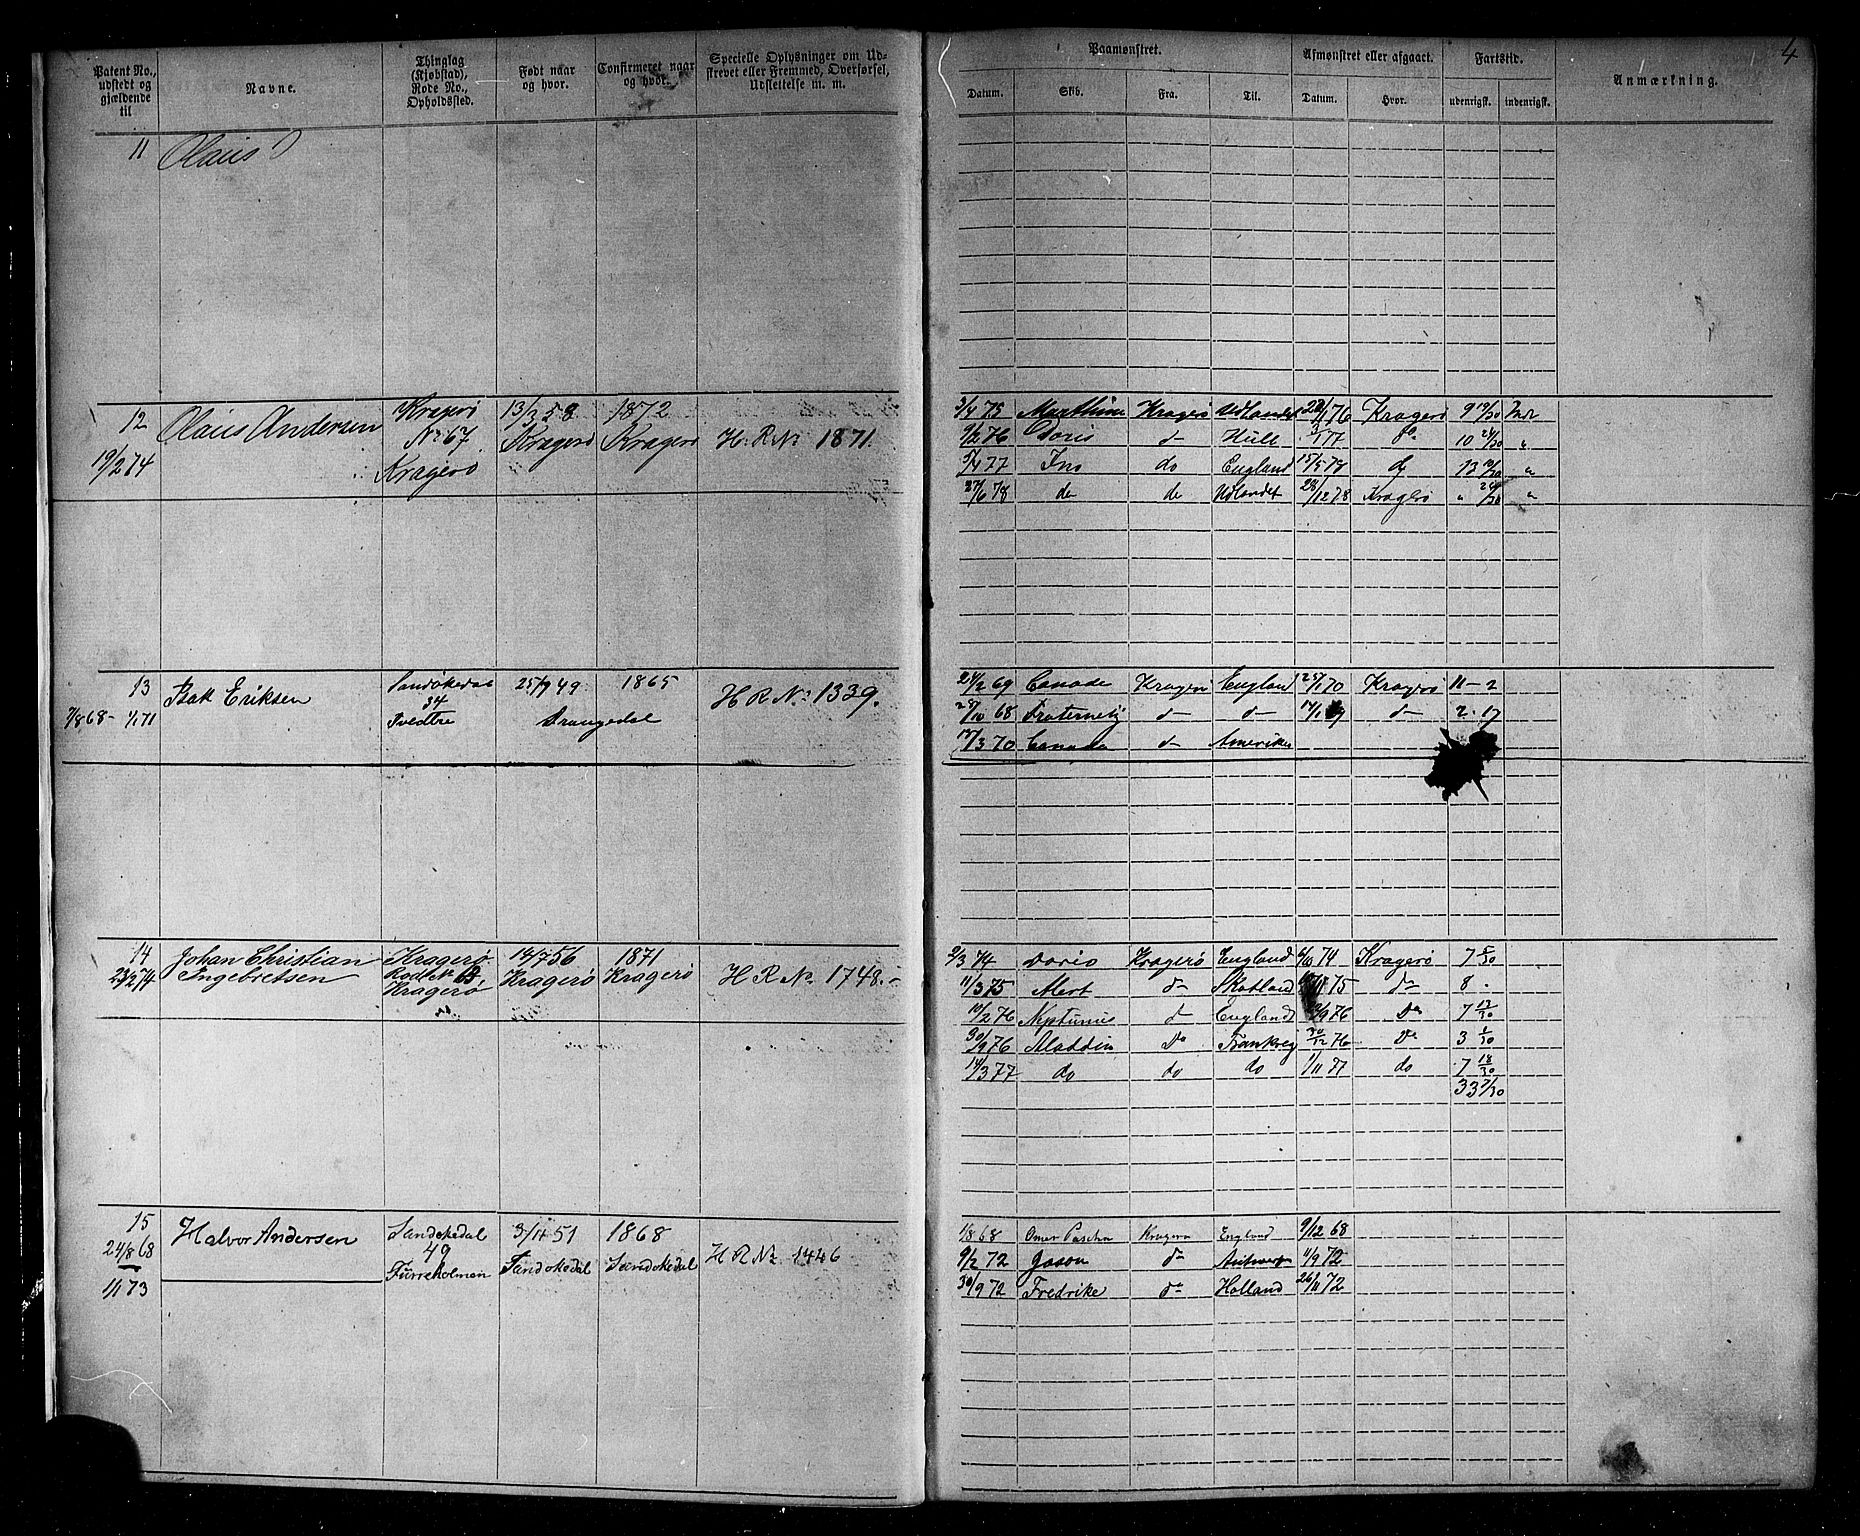 4
Patent No., udstedt og gjældende til
Navne.
Thinglag (Kjøbstad), Rode No., Opholdssted.
Født naar og hvor.
Confirmeret naar og hvor.
Specielle Oplysninger om Udskrevet eller Fremmed, Overførsel, Udslettelse m. m.
Paamønstret.
Afmønstret eller afgaaet.
Fartstid.
Anmærkning.
Datum. Skib. Fra. Til. Datum. Hvor. udenrigsk. indenrigsk.
11 Olaus
12 Olaus Andersen Kragerø 13/3 58 1872
No 67. Kragerø Kragerø H. R No 1871.
19/2 74 Kragerø
3/4 75 Marthine Kragerø Udlandet 22/1 76 Kragerø 9 19/30
9/2 76 Doris d— Hull 77 do 10 24/30 "
5/4 77 Ino do England 15/5 78 d 13 10/30 "
27/6 78 do do Udlandet 28/12 78 Kragerø " 24/30 "
13 Isak Eriksen Sandøkedal 25/9 49 1865 H R No 1339.
34
7/8 68 — 1/1 71 Drangedal
24/2 69 Canada Kragerø England 25/1 70 Kragerø 11 - 2
28/10 68 Fraternety d— d— 14/1 69 d— 2. 17
17/3 70 Canada d— Amerika
14 Johan Christian Kragerø 14/7 56 1871
23/2 74 Ingebretsen Rode No 13, Kragerø Kragerø H R No 1748.—
Kragerø
9/3 74 Doris Kragerø England 6/10 74 Kragerø 7 5/30
11/3 75 Alert do Skotland 11 75 do 8 .
10/2 76 Neptunus d England 12/9 76 Do 7 12/30
30/9 76 Aladdin Do Frankrig 30/12 76 Do 3 1/30
14/3 77 do do do 1/11 77 do 7 18/30
33 7/30
15 Halvor Andersen Sandøkedal 3/11 51 1868
24/8 68 49 Sandøkedal Sandøkedal H R No 1446
1/1 73 Furreholmen
1/8 68 Omer Pascha Kragerø England 9/12 68
9/2 72 Jason do Antwerp 11/9 72
30/9 72 Fredrike do Holland 26/11 72